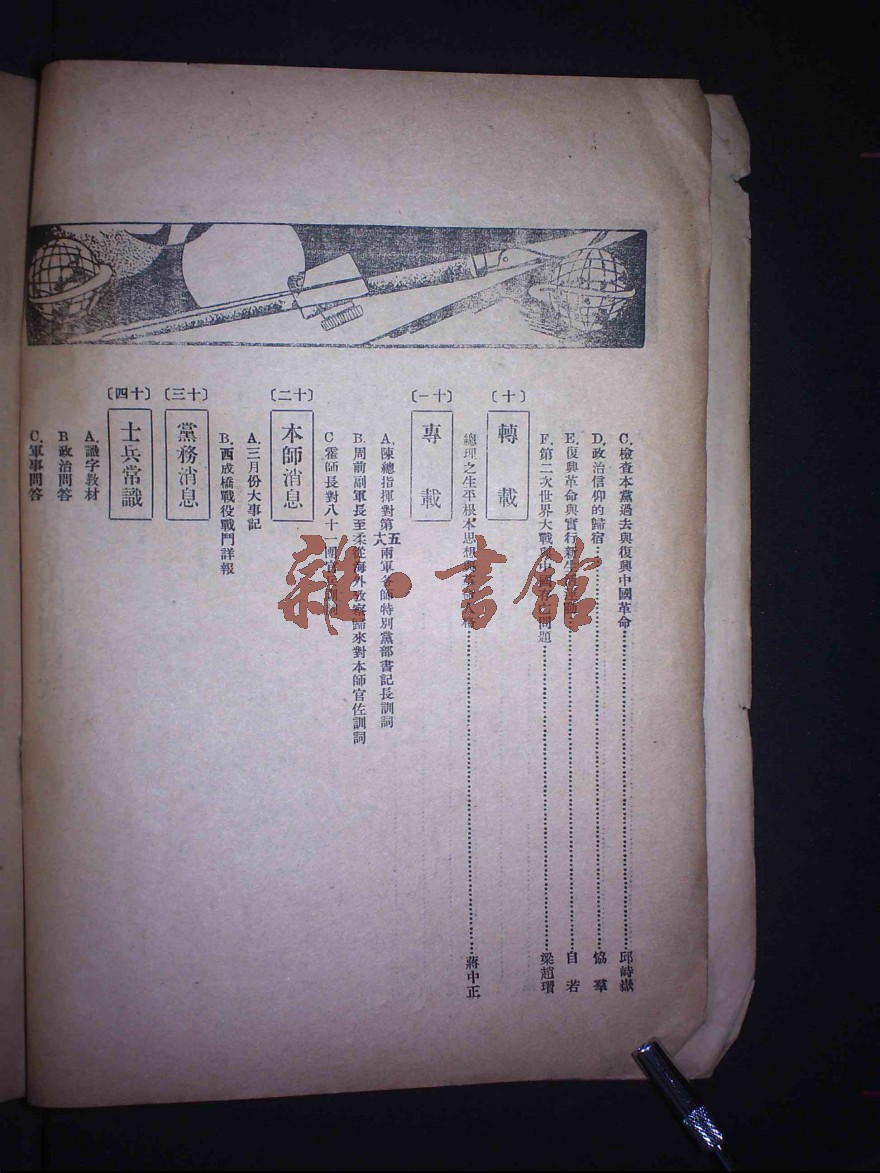 C.檢查本黨過去與復興中國革命……邱時嶽
D.政治信仰的歸宿……恊羣
E.復興革命與實行新生活運動……自若
F.第二次世界大戰與中國存亡問題……梁趙瓚
〔十〕
轉載
總理之生平根本思想與革命人格……蔣中正
〔十一〕
專載
A.陳總指揮對第五六兩軍各師特別黨部書記長訓詞
B.周前副軍長至柔從海外攷察歸來對本師官佐訓詞
C霍師長對八十一團官兵訓
〔十二〕
本師消息
A.三月份大事記
B.西成橋戰役戰鬥詳報
〔十三〕
黨務消息
〔十四〕
士兵常識
A.識字教材
B政治問答
C.軍事問答
雜·書館